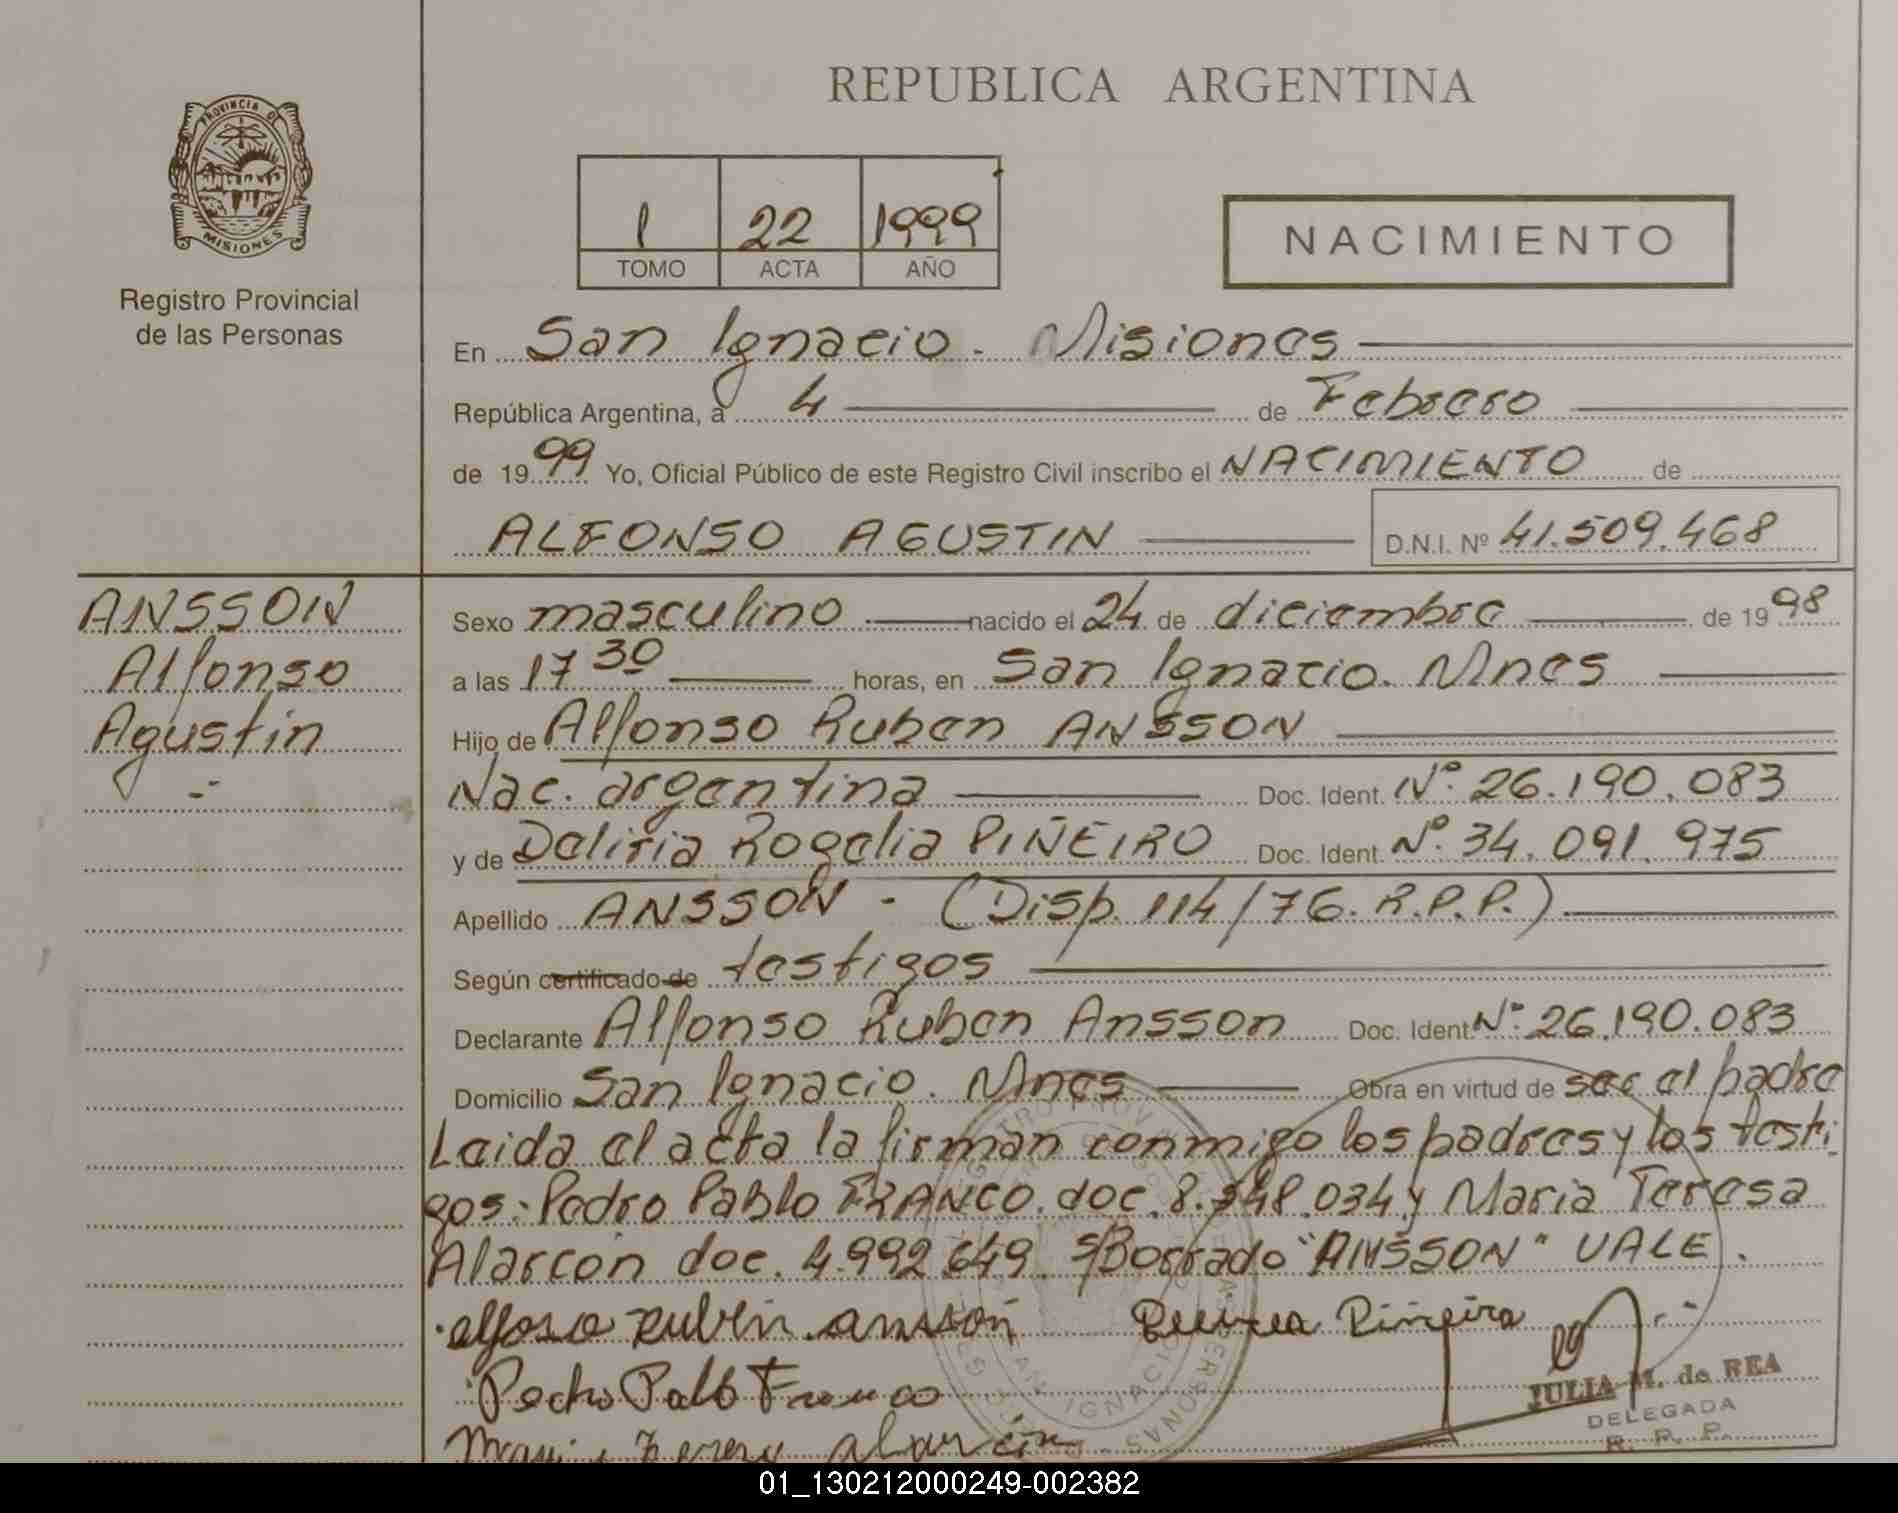 REPUBLICA ARGENTINA
PROVINCIA DE
MISIONES
Registro Provincial
de las Personas
1 22 1999
TOMO ACTA AÑO
NACIMIENTO
En San Ignacio - Misiones
República Argentina, a 4 de Febrero
de 1999 Yo, Oficial Público de este Registro Civil inscribo el NACIMIENTO de
ALFONSO AGUSTIN D.N.I. Nº 41.509.468
ANSSON
Alfonso
Agustin
Sexo masculino nacido el 24 de diciembre de 1998
a las 17 30 horas, en San Ignacio. Mnes
Hijo de Alfonso Ruben ANSSON
Nac. argentina Doc. Ident. Nº 26.190.083
y de Deliria Rogelia PIÑEIRO Doc. Ident. Nº 34.091.975
Apellido ANSSON - (Disp. 114/76. R.P.P.)
Según certificado de testigos
Declarante Alfonso Ruben Ansson Doc. Ident. Nº 26.190.083
Domicilio San Ignacio. Mnes Obra en virtud de ser el padre
Leida el acta la firman conmigo los padres y los testi
gos: Pedro Pablo FRANCO. doc. 8.348.034 y Maria Teresa
Alarcón doc. 4.992.649. s/Borrado "ANSSON" VALE.
Pedro Pablo Franco
JULIA M. de REA
DELEGADA
R. P. P.
01_130212000249-002382